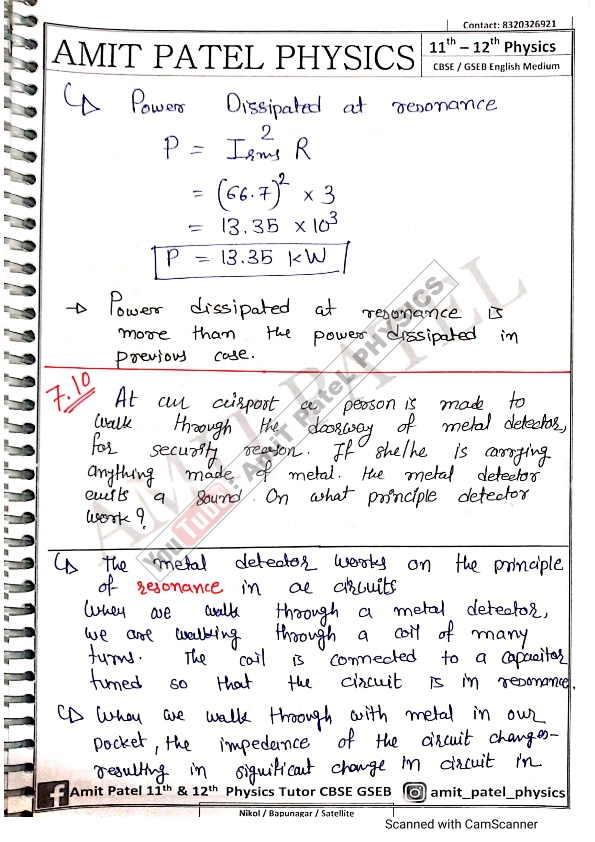 Contact: 8320326921
AMIT PATEL PHYSICS
11th – 12th Physics
CBSE / GSEB English Medium
Power Dissipated at resonance
P = I²rms R
= (66.7)² × 3
= 13.35 × 10³
P = 13.35 kW
→ Power dissipated at resonance is
more than the power dissipated in
previous case.
7.10
At an airport a person is made to
walk through the doorway of metal detector,
for security reason. If she/he is carrying
anything made of metal. the metal detector
emits a sound. On what principle detector
work?
The metal detector works on the principle
of resonance in ac circuits
When we walk through a metal detector,
we are walking through a coil of many
turns. The coil is connected to a capacitor
tuned so that the circuit is in resonance.
When we walk through with metal in our
pocket, the impedance of the circuit changes-
resulting in significant change in circuit in
AMIT PATEL
YouTube : Amit Patel PHYSICS
Amit Patel 11th & 12th Physics Tutor CBSE GSEB
amit_patel_physics
Nikol / Bapunagar / Satellite
Scanned with CamScanner